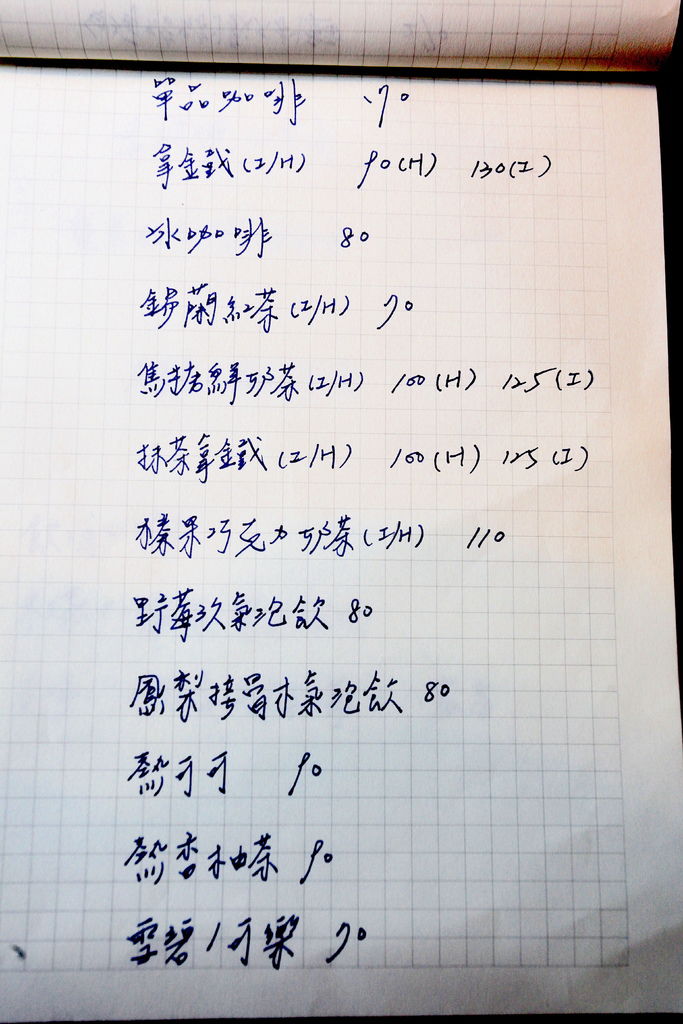 單品咖啡 70
拿鐵(I/H) 90(H) 130(I)
冰咖啡 80
錫蘭紅茶(I/H) 70
焦糖鮮奶茶(I/H) 100(H) 125(I)
抹茶拿鐵(I/H) 100(H) 125(I)
榛果巧克力奶茶(I/H) 110
野莓次氣泡飲 80
鳳梨接骨木氣泡飲 80
熱可可 90
熱香柚茶 90
雪碧/可樂 70